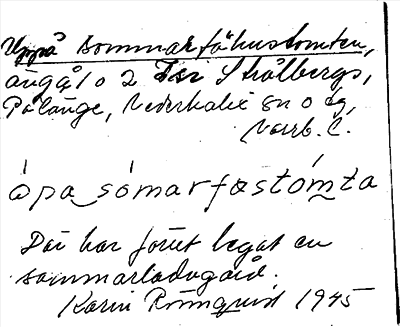 Uppå sommarfähustomten,
ängå, o 2 Tsr Stålbergs,
Pålänge, Nederkalix sn o dg,
Norrb. l.
ópa sómarfæstómta
Där har förut legat en
sommarladugård.
Karin Rönnqvist 1945